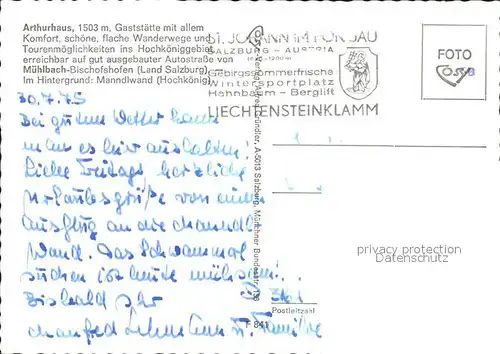 Arthurhaus, 1503 m, Gaststätte mit allem
Komfort, schöne, flache Wanderwege und
Tourenmöglichkeiten ins Hochköniggebiet
erreichbar auf gut ausgebauter Autostraße von
Mühlbach-Bischofshofen (Land Salzburg)
Im Hintergrund: Manndlwand (Hochkönig)
ST. JOHANN IM PONGAU
SALZBURG - AUSTRIA
Gebirgssommerfrische
Wintersportplatz
Hahnbaum - Berglift
LIECHTENSTEINKLAMM
FOTO
ÖSV
30.7.75
Bei gutem Wetter kann
man es hier aushalten!
Liebe Freitags, herzliche
Urlaubsgrüße von einem
Ausflug an die Manndl
Wand. Das Schwammerl
suchen ist heute mühsam!
Bis bald Ihr
Manfred Lehmann u. Familie
A-5013 Salzburg, Münchner Bundesstr.
Postleitzahl
F 841
privacy protection
Datenschutz